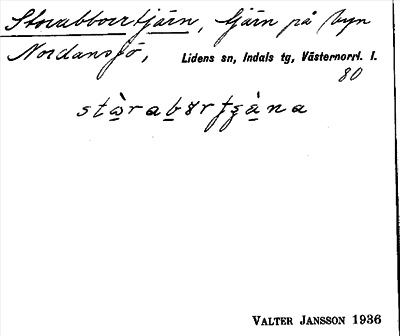 Storabborrtjärn, tjärn på byn
Nordansjö, Lidens sn, Indals tg, Västernorrl. l.
80
VALTER JANSSON 1936